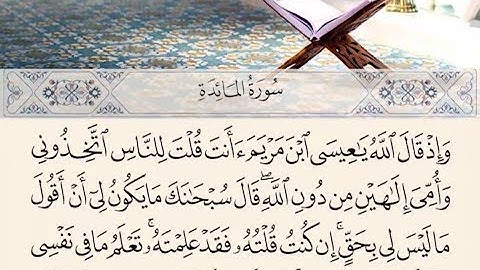 سُورَةُ المَائِدَةِ
وَإِذۡ قَالَ ٱللَّهُ يَٰعِيسَى ٱبۡنَ مَرۡيَمَ ءَأَنتَ قُلۡتَ لِلنَّاسِ ٱتَّخِذُونِي
وَأُمِّيَ إِلَٰهَيۡنِ مِن دُونِ ٱللَّهِۖ قَالَ سُبۡحَٰنَكَ مَا يَكُونُ لِيٓ أَنۡ أَقُولَ
مَا لَيۡسَ لِي بِحَقٍّۚ إِن كُنتُ قُلۡتُهُۥ فَقَدۡ عَلِمۡتَهُۥۚ تَعۡلَمُ مَا فِي نَفۡسِي